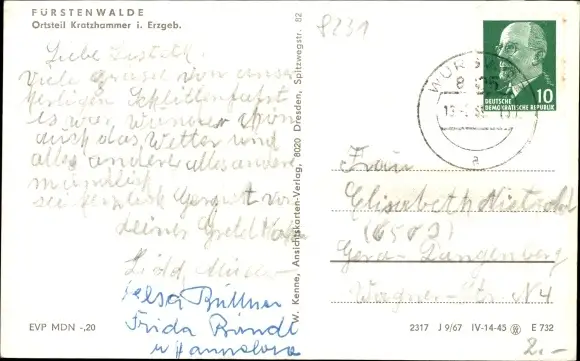 FÜRSTENWALDE
Ortsteil Kratzhammer i. Erzgeb.
8231
Liebe
Viele Grüsse von unser
herligen Schlittenfahrt
es war Wunder schön
auch das Wetter und
alles andere alles andere
mündlich
sei herzlich Gegrüst von
deiner
Helga Büttner
Frida Brandt
u Hannelore
EVP MDN -,20
W. Kenne, Ansichtskarten-Verlag, 8020 Dresden, Spitzwegstr. 82
10
DEUTSCHE
DEMOKRATISCHE REPUBLIK
Frau
Elisabeth
(6503)
Gera-Langenberg
Wagner-Str. N 4
2317 J 9/67 IV-14-45 E 732
2.-